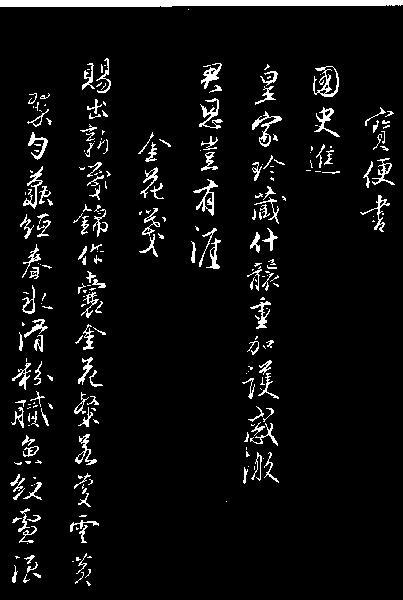 寶便書
國史進
皇家珍藏什襲重加護感激
君恩豈有涯
金花箋
賜出新箋錦作囊金花粲若蔓雲黃
翠勻蘸經春水滑粉膩魚紋雪浪